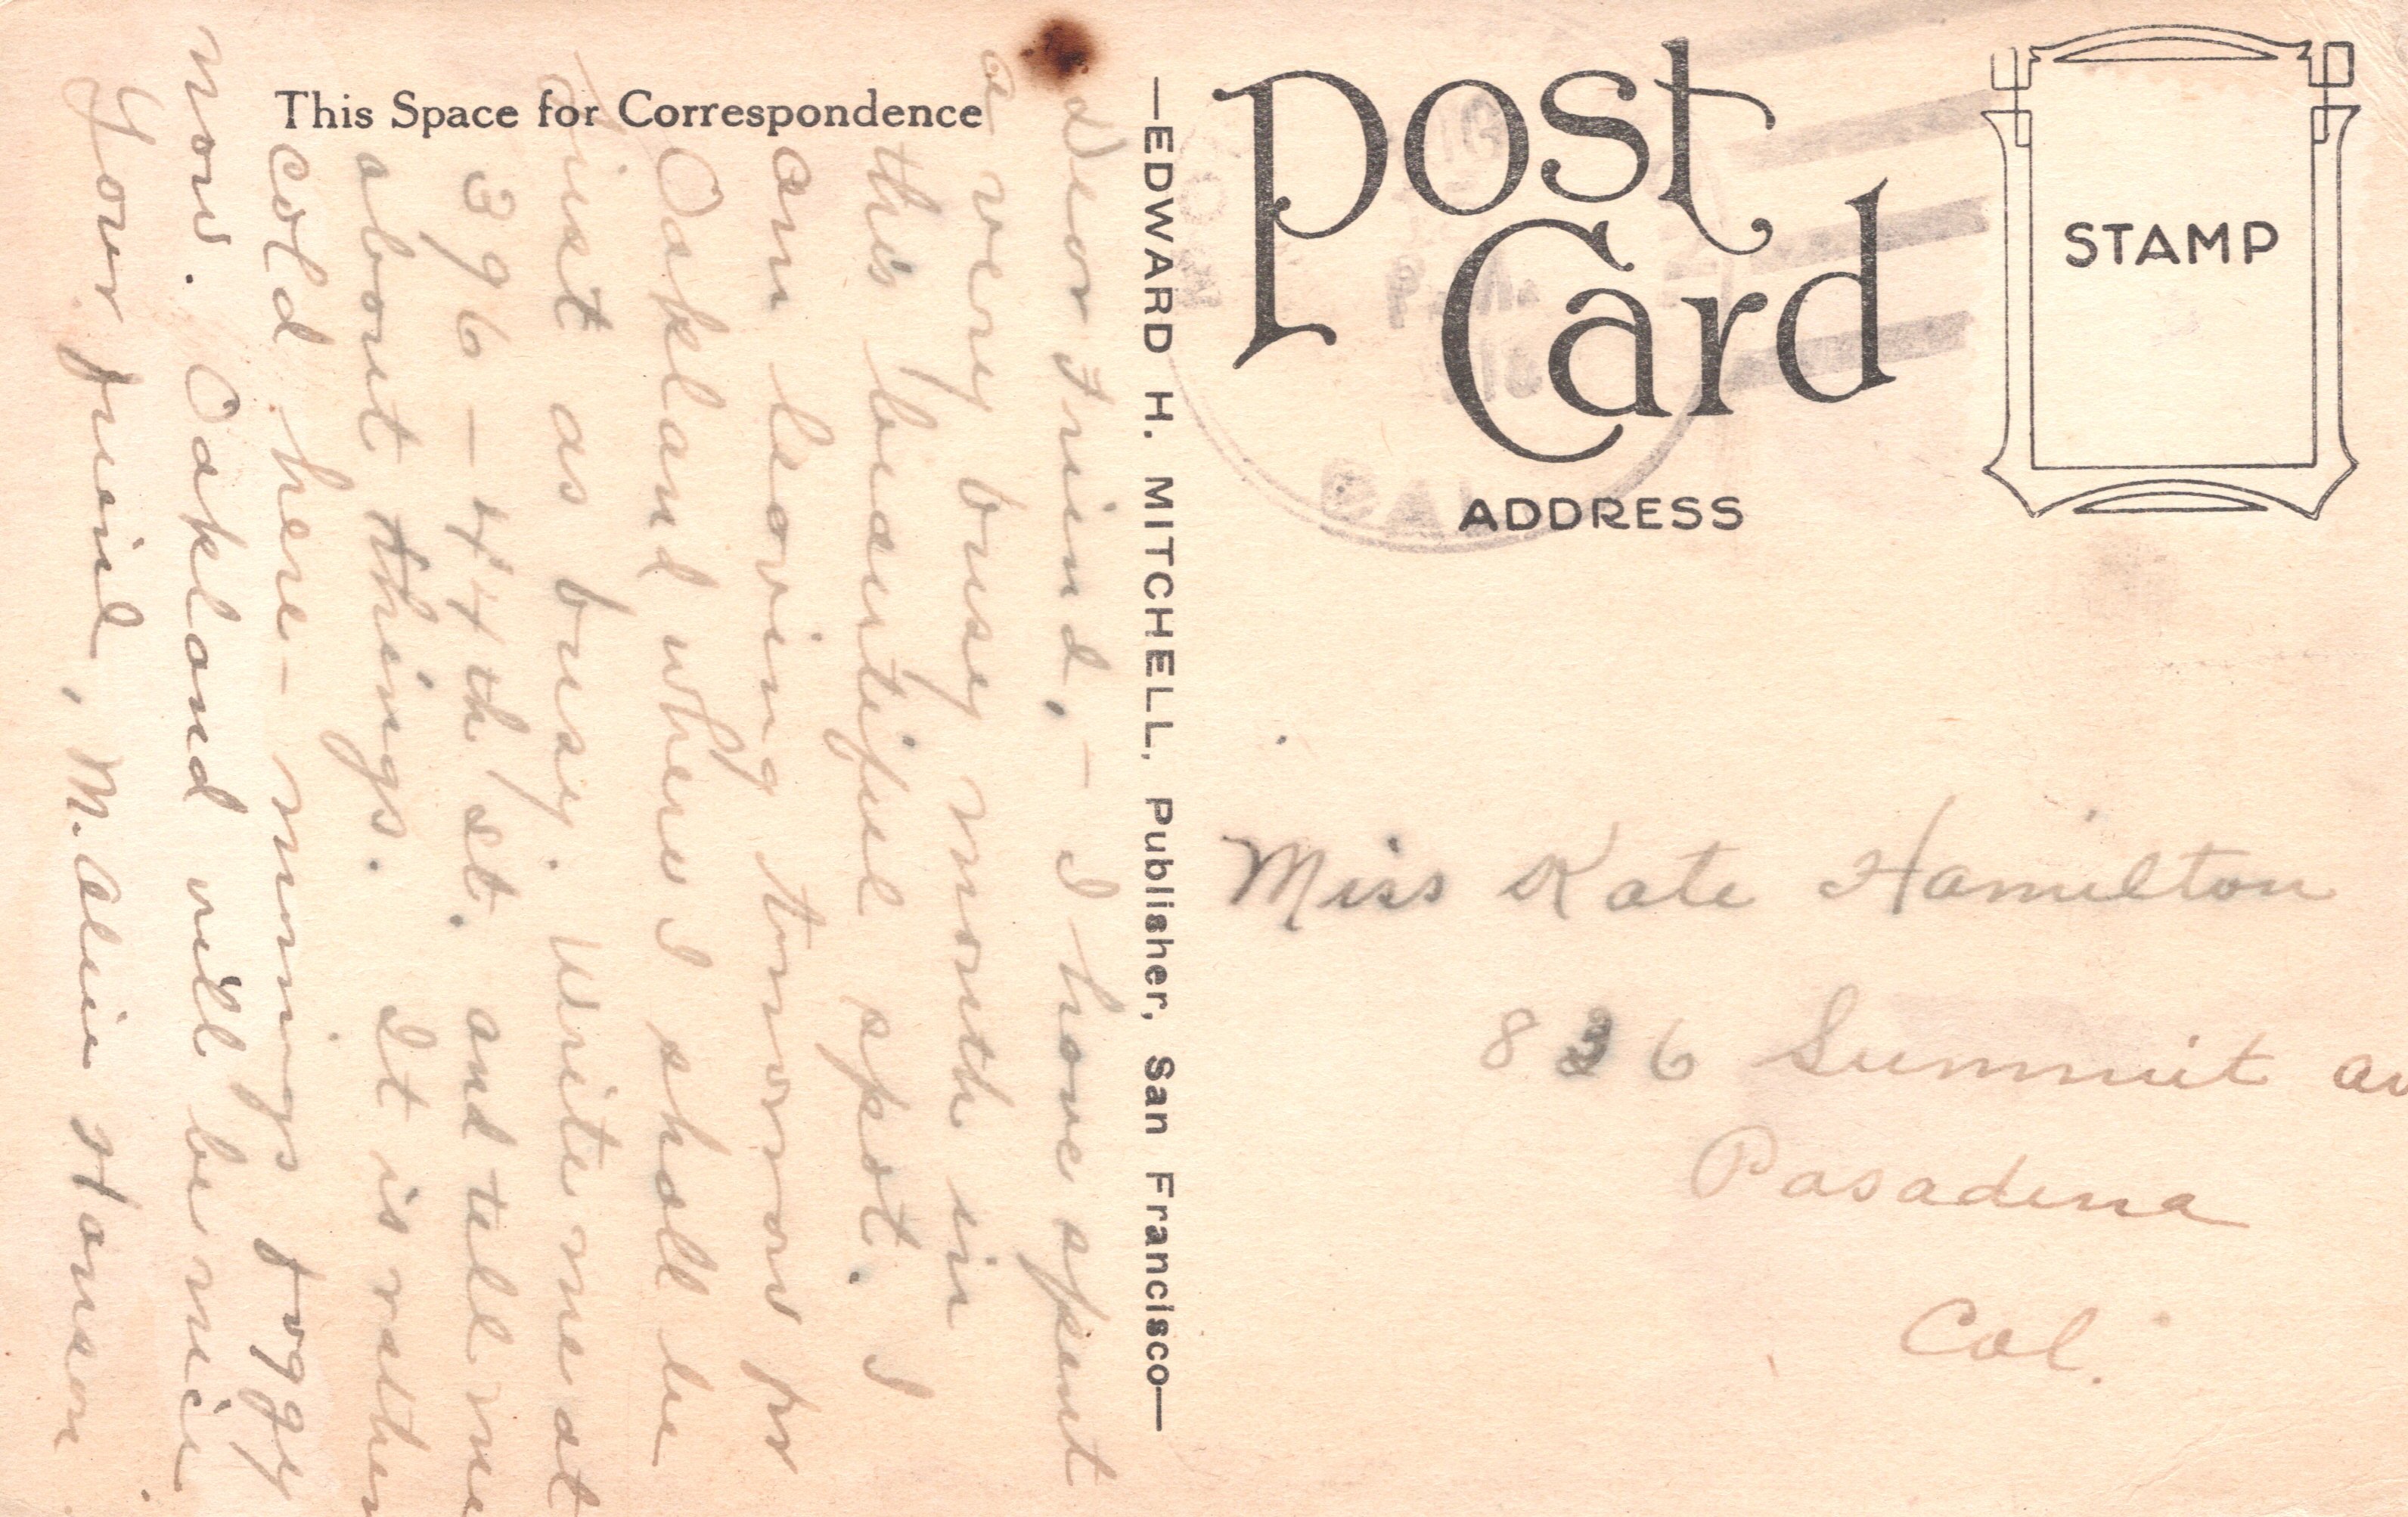 This Space for Correspondence
Dear Friend, - I have spent
a very busy month in
this beautiful spot. I
am leaving tomorrow for
Oakland where I shall be
just as busy. Write me at
396 - 44th St. and tell me
about things. It is rather
cold here - mornings foggy
now. Oakland will be nice
Your friend, M. Hanson
—EDWARD H. MITCHELL, Publisher, San Francisco—
Post
Card
ADDRESS
STAMP
CAL
Miss Kate Hamilton
836 Summit av
Pasadena
Cal.